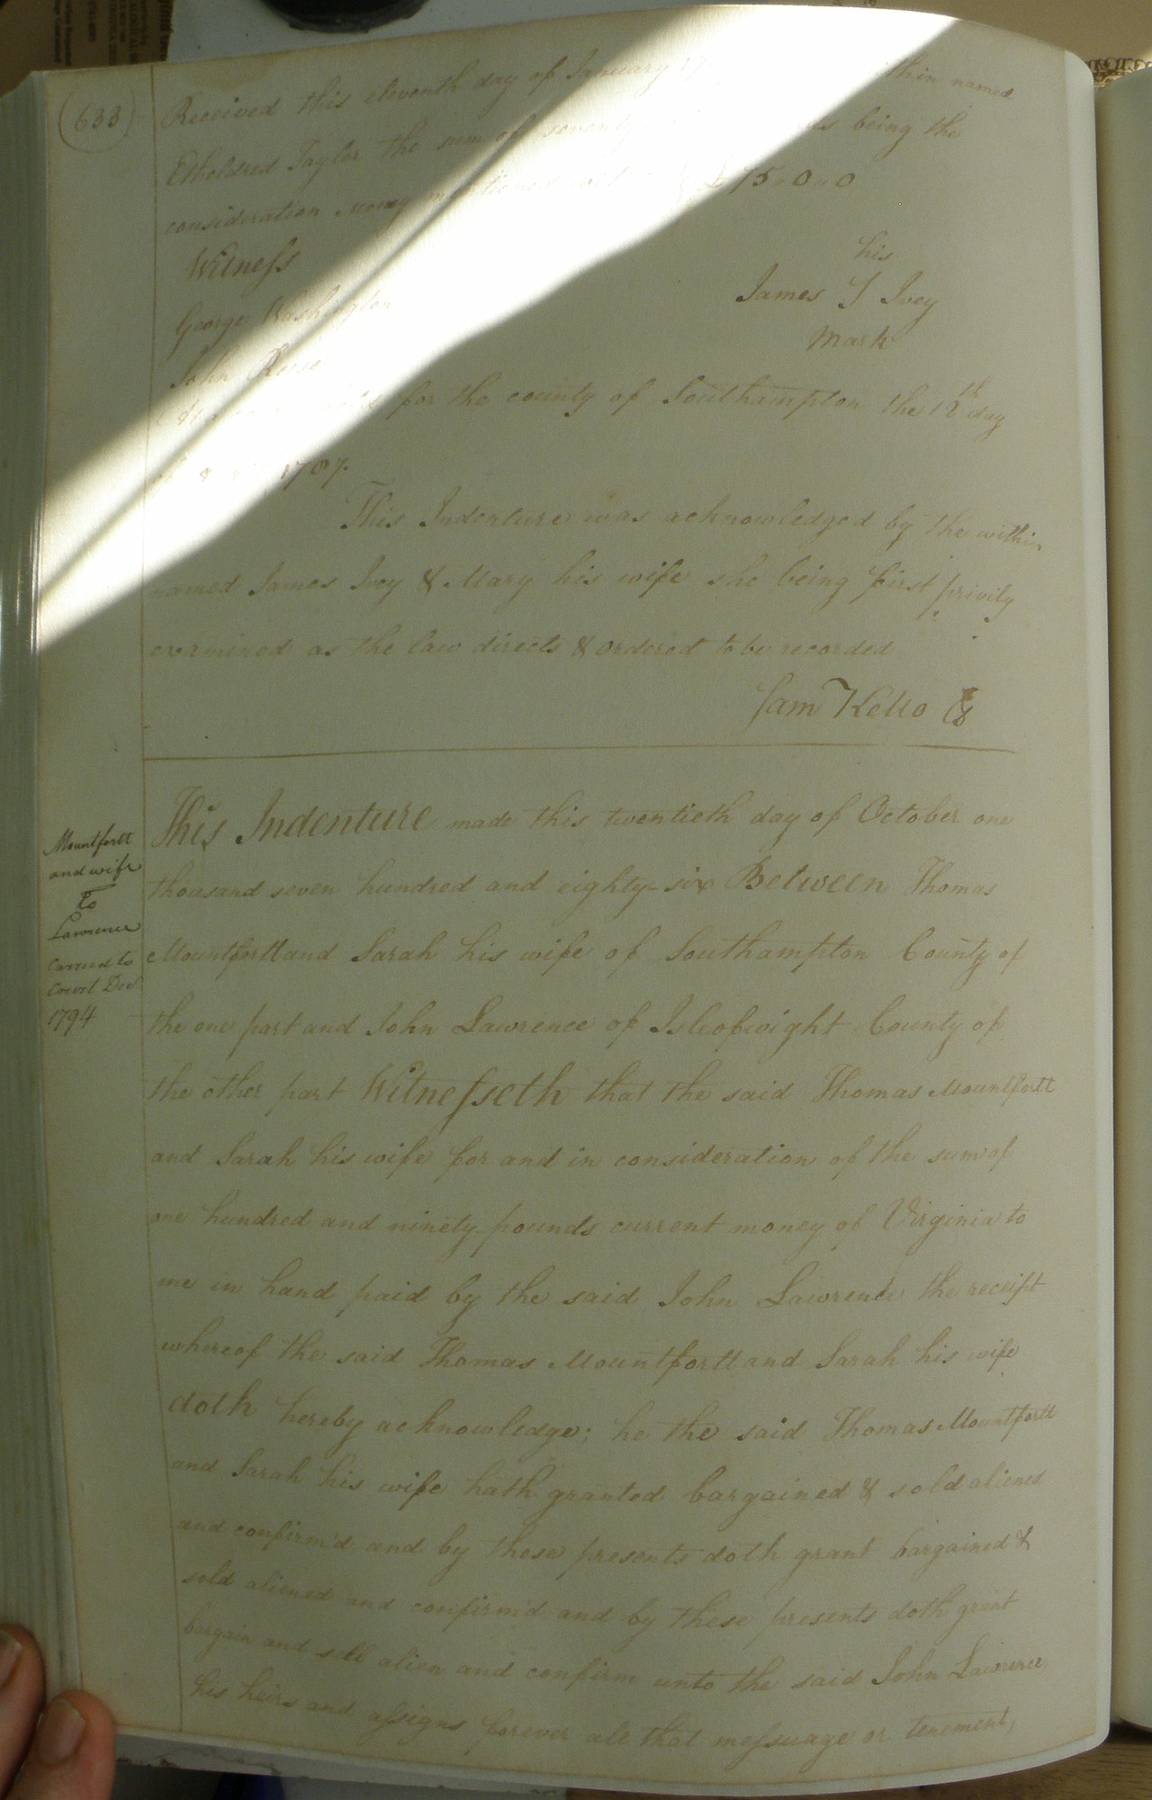 (633)
Received this eleventh day of January 17 thin named
Etheldred Taylor the sum of seventy being the
consideration Money mentioned £75..0..0
Witness
his
George Washington
James I Ivey
Mark
John Rense
for the county of Southampton the 12th day
1787.
This Indenture was acknowledged by the within
named James Ivey & Mary his wife she being first privily
examined as the law directs & ordered to be recorded
Sam Kello
Mountfortt
and wife
To
Lawrence
carried to
Court Decr
1794
This Indenture made this twentieth day of October one
thousand seven hundred and eighty-six Between Thomas
Mountfortt and Sarah his wife of Southampton County of
the one part and John Lawrence of Isleofwight County of
the other part Witnesseth that the said Thomas Mountfortt
and Sarah his wife for and in consideration of the sum of
one hundred and ninety pounds current money of Virginia to
me in hand paid by the said John Lawrence the receipt
whereof the said Thomas Mountfortt and Sarah his wife
doth hereby acknowledge; he the said Thomas Mountfortt
and Sarah his wife hath granted bargained & sold aliened
and confirm'd and by these presents doth grant bargained &
sold aliened and confirm'd and by these presents doth grant
bargain and sell alien and confirm unto the said John Lawrence
his heirs and assigns forever all that messuage or tenement,